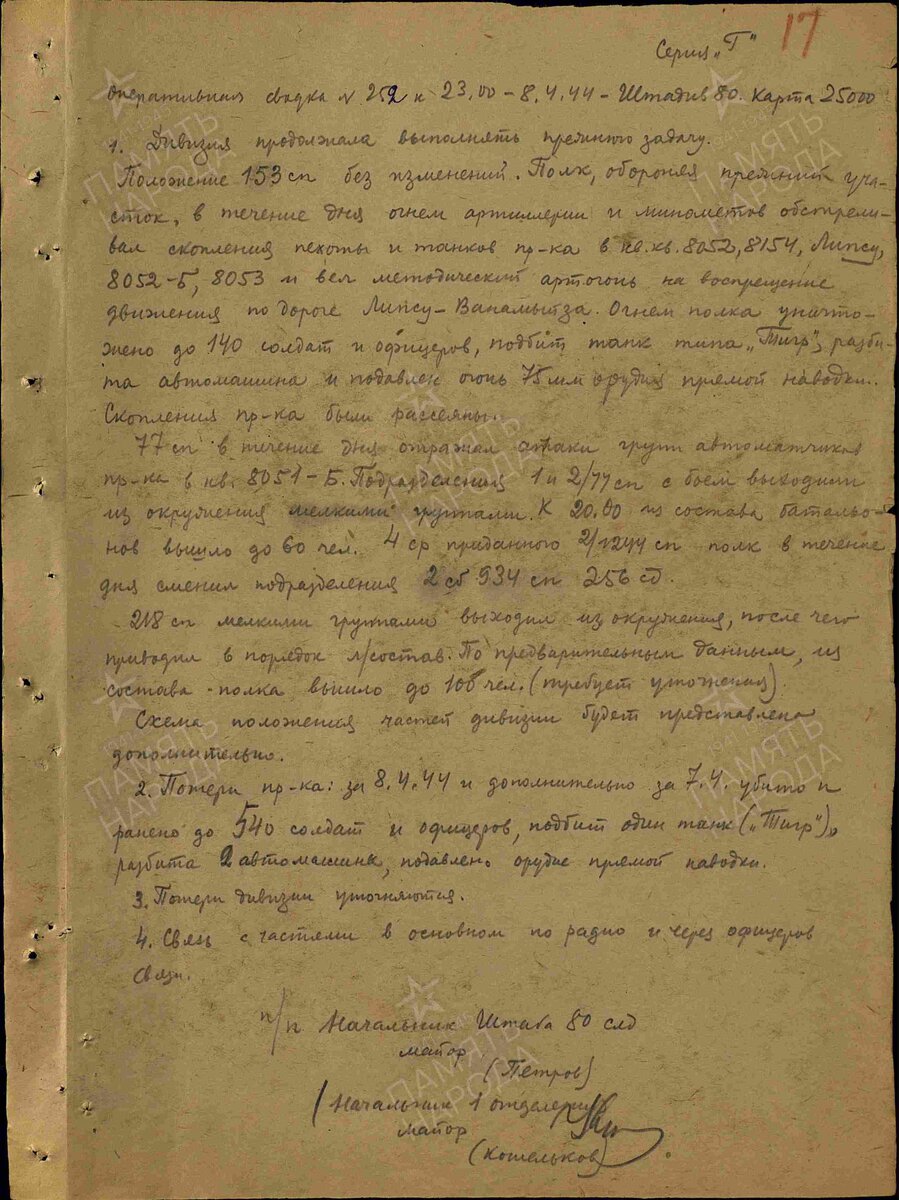 17
Серия "Г"
Оперативная сводка № 259 к 23.00 - 8.4.44 - Штадив 80. Карта 25000
1. Дивизия продолжала выполнять прежнюю задачу.
Положение 153 сп без изменений. Полк, обороняя прежний уча-
сток, в течение дня огнем артиллерии и минометов обстрели-
вал скопления пехоты и танков пр-ка в кв.кв. 8052, 8154, Липсу,
8052-Б, 8053 и вел методический артогонь на воспрещение
движения по дороге Липсу-Ванамытза. Огнем полка уничто-
жено до 140 солдат и офицеров, подбит танк типа "Тигр", разби-
та автомашина и подавлен огонь 75 мм орудия прямой наводки.
Скопления пр-ка были рассеяны.
77 сп в течение дня отражал атаки групп автоматчиков
пр-ка в кв. 8051-Б. Подразделения 1 и 2/77 сп с боем выходили
из окружения мелкими группами. К 20.00 из состава батальо-
нов вышло до 60 чел. 4 ср приданного 2/1244 сп полк в течение
дня сменил подразделения 2 сб 934 сп 256 сд.
218 сп мелкими группами выходил из окружения, после чего
приводил в порядок л/состав. По предварительным данным, из
состава полка вышло до 100 чел. (требует уточнения).
Схема положения частей дивизии будет представлена
дополнительно.
2. Потери пр-ка: за 8.4.44 и дополнительно за 7.4. убито и
ранено до 540 солдат и офицеров, подбит один танк ("Тигр"),
разбита 2 автомашина, подавлено орудие прямой наводки.
3. Потери дивизии уточняются.
4. Связь с частями в основном по радио и через офицеров
связи.
п/п Начальник Штаба 80 слд
майор
(Петров)
Начальник 1 отделения
майор
(Котельков)
ПАМЯТЬ НАРОДА